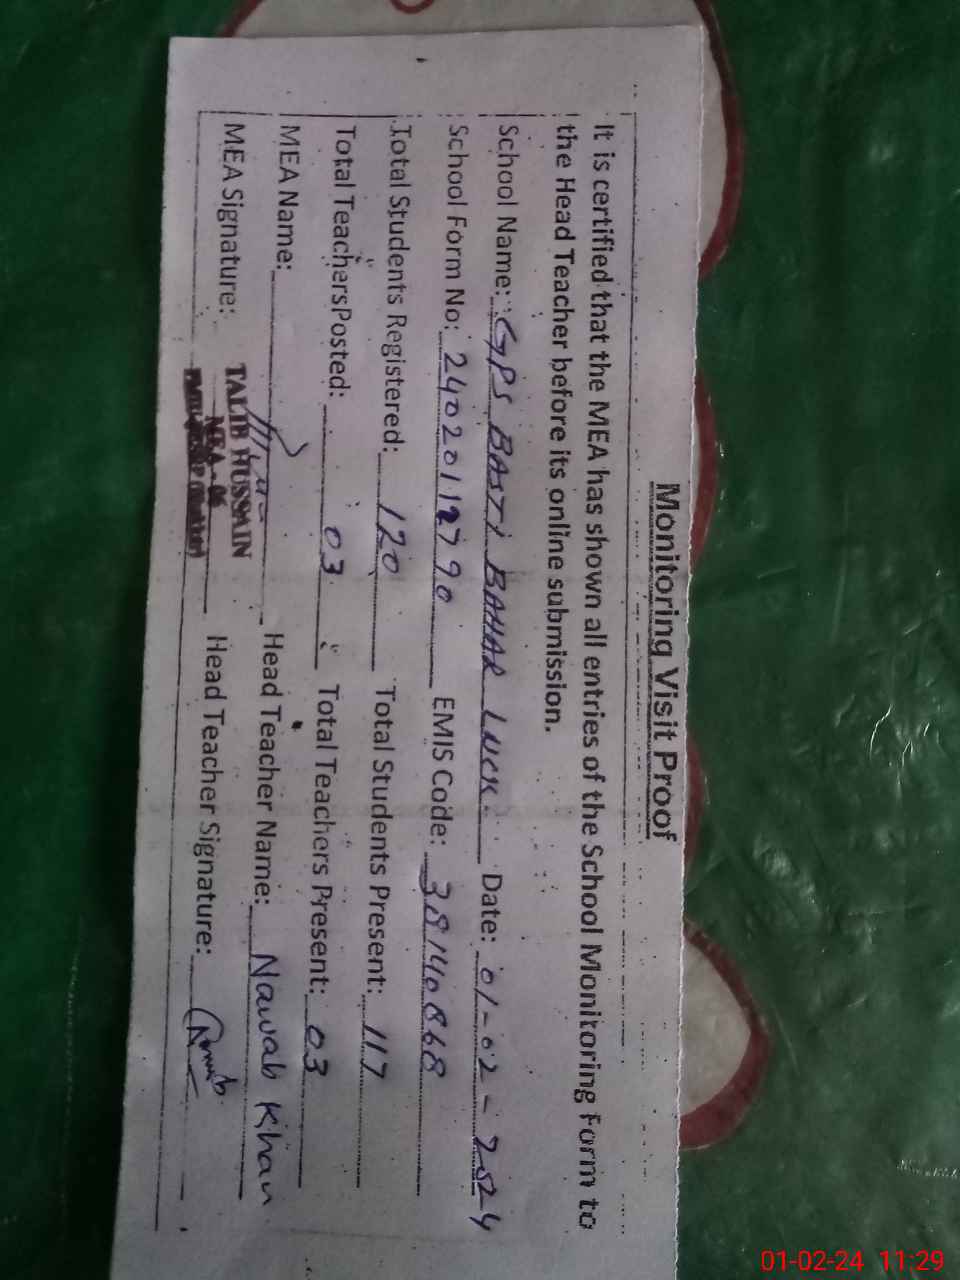 Monitoring Visit Proof
It is certified that the MEA has shown all entries of the School Monitoring Form to
the Head Teacher before its online submission.
School Name: GPS BASTI BAHAR LUCK Date: 01-02-2024
School Form No: 24020112790 EMIS Code: 38140868
Total Students Registered: 120 Total Students Present: 117
Total TeachersPosted: 03 Total Teachers Present: 03
MEA Name: Head Teacher Name: Nawab Khan
MEA Signature: Head Teacher Signature: Nawab
TALIB HUSSAIN
MEA - 06
01-02-24 11:29